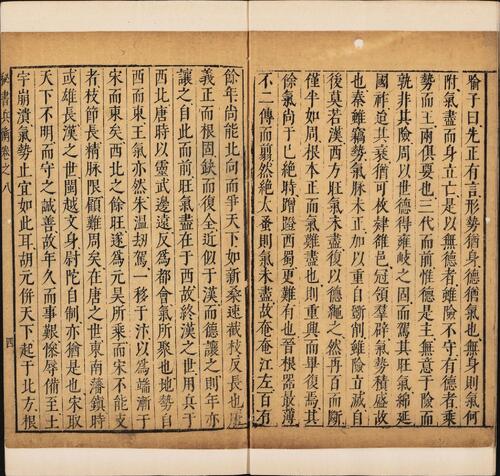 喻子曰先正有言形勢猶身德猶氣也無身則氣何
附氣盡而身立亡是以無德者雖險不守有德者乘
勢而王兩俱戛也三代而前惟德是主無意于險而
孰非其險周以世德得雍岐之固而駕其旺氣綿延
國祚迨其衰猶可枚肄雒邑冠領羣辟氣勢積盛故
也秦雖竊勢氣脉未正加以重自斵削雖險立滅自
後莫若漢西方旺氣未盡復以德繩之然再百而斷
僅半如周根本正而氣難盡也則重興而畢復焉其
餘氣尚于已絶時蹭蹬西蜀更難有也晉根器最薄
不二傳而翦然絶太蚤則氣未盡故奄奄江左百有
餘年尚能北向而爭天下如新桑速截枝反長也唐
義正而根固缺而復全近似于漢而德讓之則年亦
讓之自此而前旺氣盡在于西故終漢之世用兵于
西北唐時以靈武邊遠反為都會氣所聚也地勢自
西而東王氣亦然朱溫刼駕一移于汴以爲端漸于
宋而東矣西北之餘旺遂爲元吴所乘而宋不能支
者枝節長精脉限顧難周矣在唐之世東南藩鎮時
或雄長漢之世閩越文身尉陀自制亦猶是也宋取
天下不明而守之誠善故年久而事艱慘辱備至土
宇崩潰氣勢止宜如此耳胡元併天下起于北方根
秘書兵衡卷之八
四